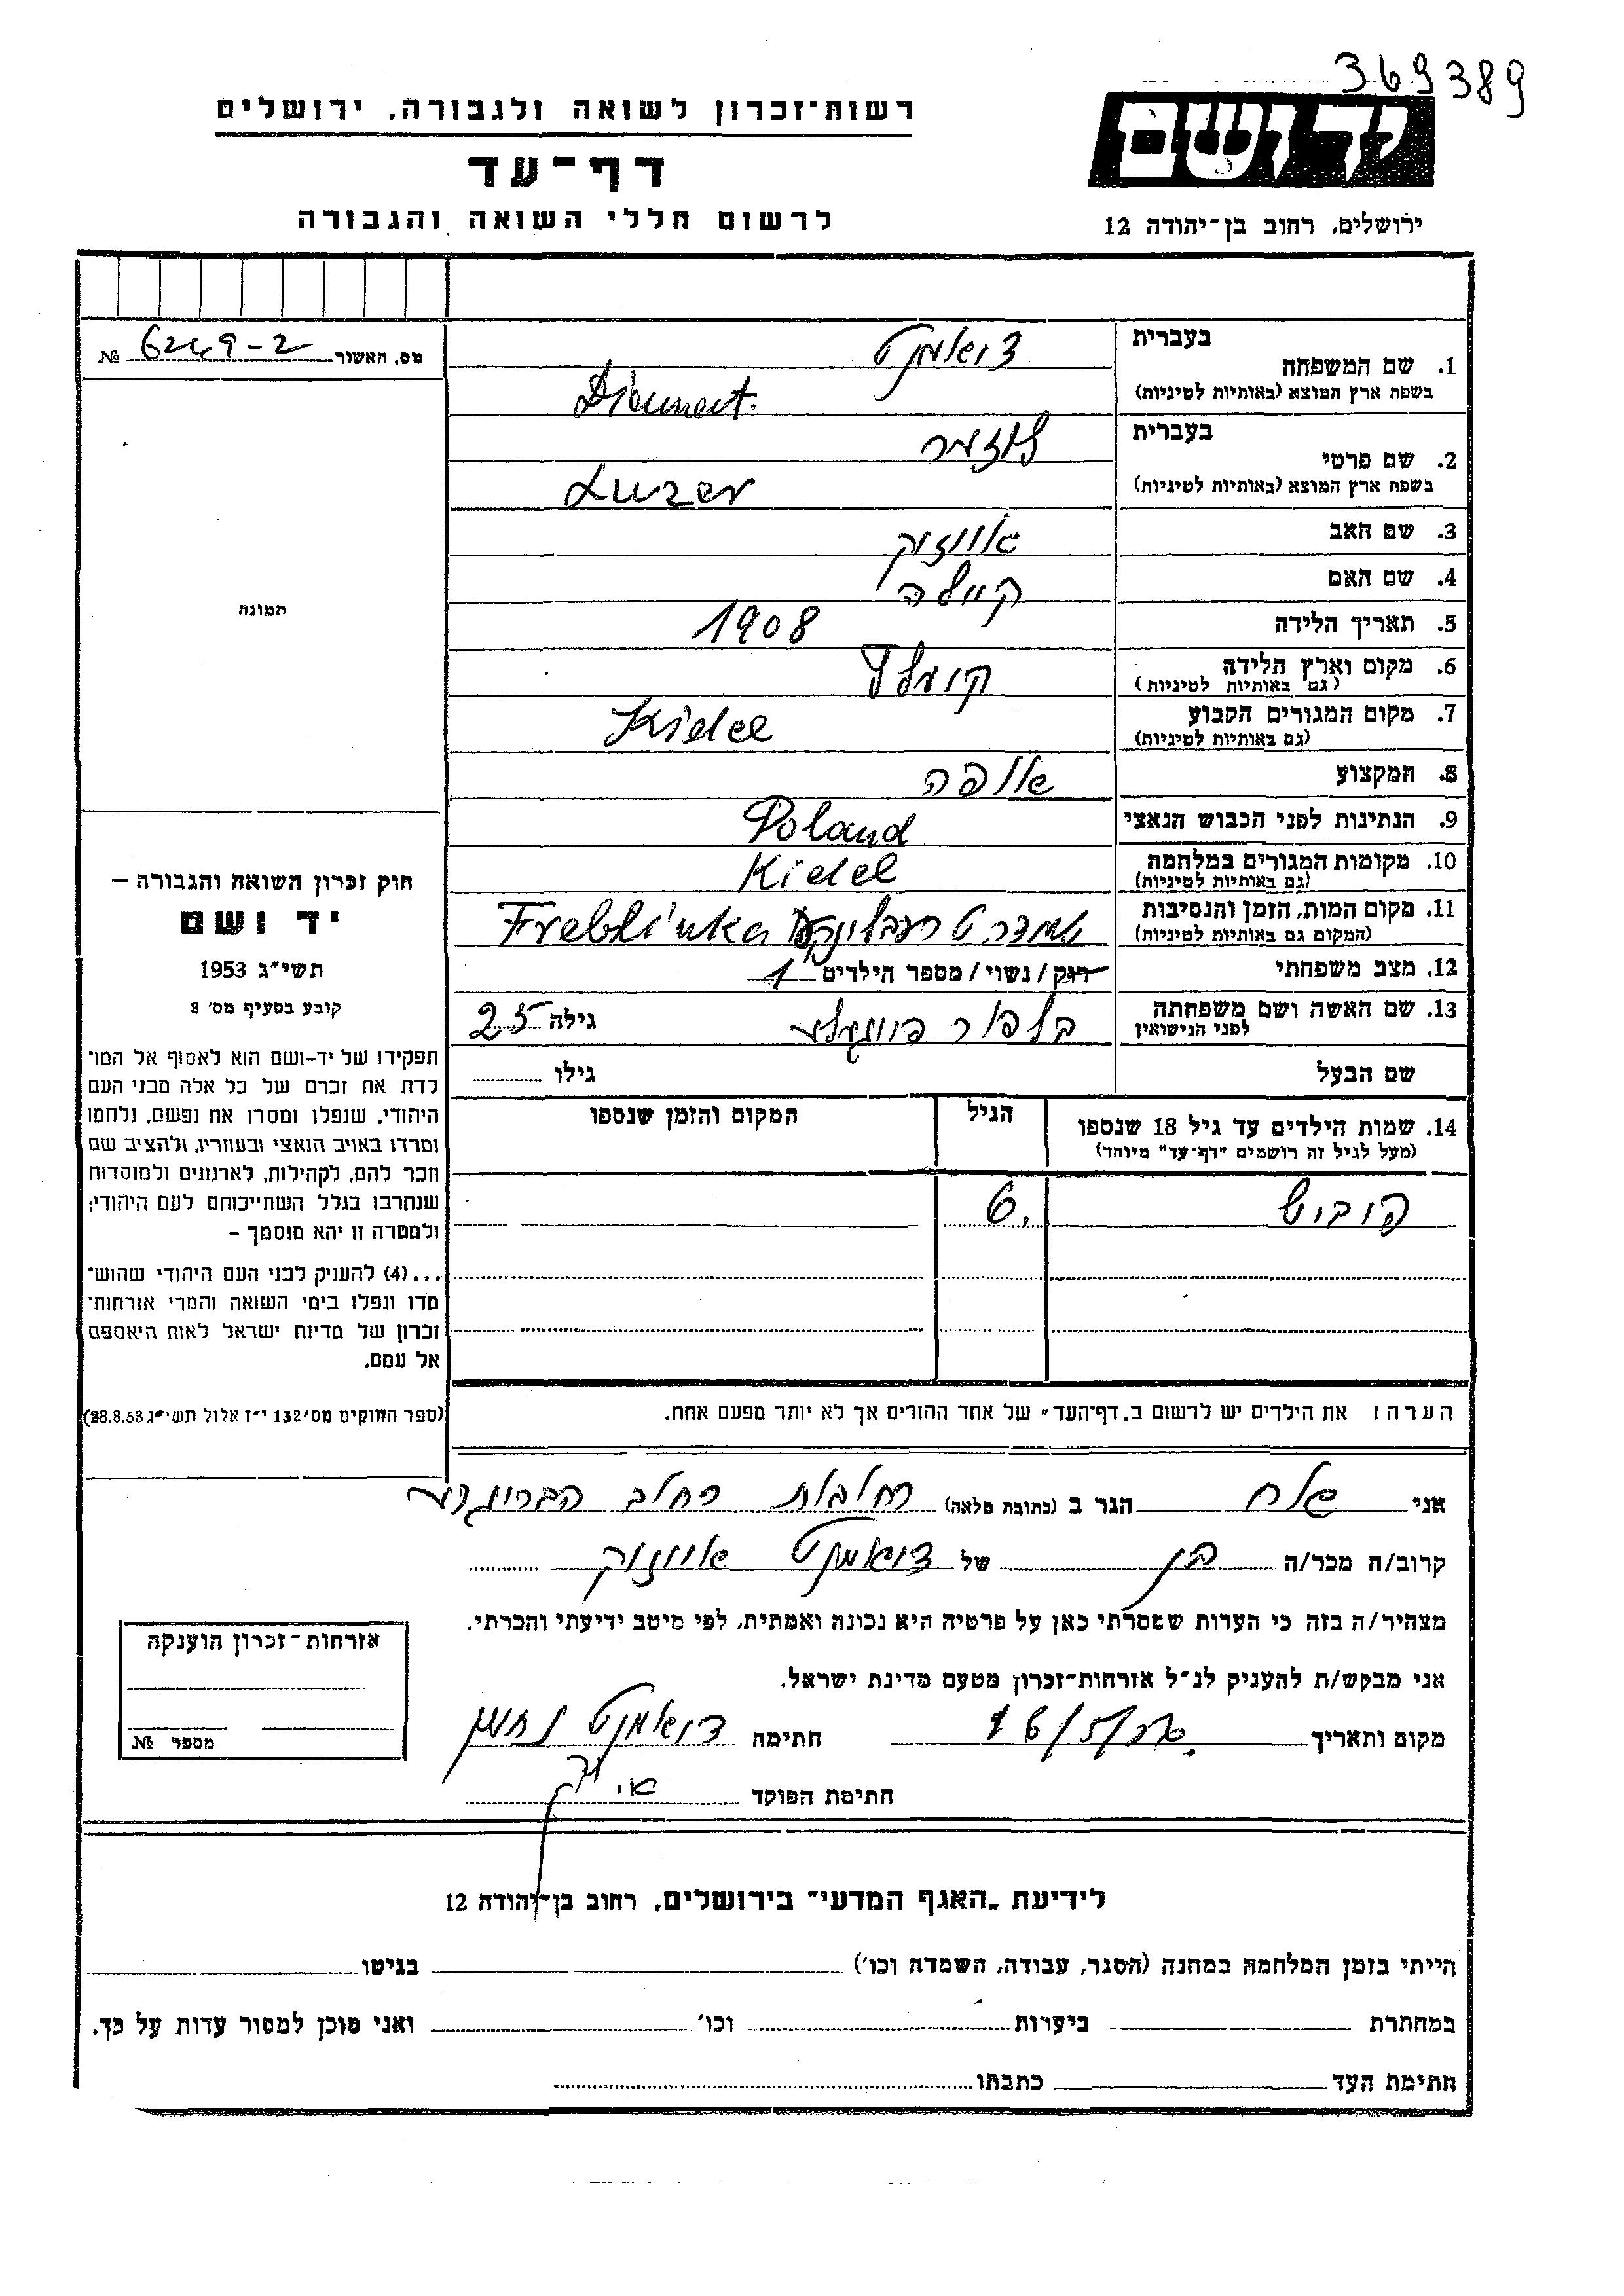 369389
רשות־זכרון לשואה ולגבורה, ירושלים
יד ושם
דף־עד
לרשום חללי השואה והגבורה
ירושלים, רחוב בן־יהודה 12
מס. האשור 6249-2 №
בעברית
1. שם המשפחה
בשפת ארץ המוצא (באותיות לטיניות)
בעברית
2. שם פרטי
בשפת ארץ המוצא (באותיות לטיניות) Luzer
3. שם האב
4. שם האם קיילה
5. תאריך הלידה 1908
6. מקום וארץ הלידה
(גם באותיות לטיניות)
7. מקום המגורים הקבוע Kielce
(גם באותיות לטיניות)
8. המקצוע אופה
9. הנתינות לפני הכבוש הנאצי Poland
10. מקומות המגורים במלחמה
(גם באותיות לטיניות)
11. מקום המות, הזמן והנסיבות
(המקום גם באותיות לטיניות)
12. מצב משפחתי רווק / נשוי / מספר הילדים 1
13. שם האשה ושם משפחתה גילה 25
לפני הנישואין
שם הבעל גילו
14. שמות הילדים עד גיל 18 שנספו הגיל המקום והזמן שנספו
(מעל לגיל זה רושמים "דף־עד" מיוחד)
6
הערה: את הילדים יש לרשום ב„דף־העד" של אחד ההורים אך לא יותר מפעם אחת.
תמונה
חוק זכרון השואה והגבורה –
יד ושם
תשי"ג 1953
קובע בסעיף מס' 2
תפקידו של יד-ושם הוא לאסוף אל המו־
לדת את זכרם של כל אלה מבני העם
היהודי, שנפלו ומסרו את נפשם, נלחמו
ומרדו באויב הנאצי ובעוזריו, ולהציב שם
וזכר להם, לקהילות, לארגונים ולמוסדות
שנחרבו בגלל השתייכותם לעם היהודי;
ולמטרה זו יהא מוסמך –
...(4) להעניק לבני העם היהודי שהוש־
מדו ונפלו בימי השואה והמרי אזרחות־
זכרון של מדינת ישראל לאות היאספם
אל עמם.
(ספר החוקים מס' 132 י"ז אלול תשי"ג 28.8.53)
אני הגר ב (כתובת מלאה) רחובות רחוב
קרוב/ה מכר/ה של
מצהיר/ה בזה כי העדות שמסרתי כאן על פרטיה היא נכונה ואמתית, לפי מיטב ידיעתי והכרתי.
אני מבקש/ת להעניק לנ"ל אזרחות־זכרון מטעם מדינת ישראל.
מקום ותאריך חתימה
חתימת הפוקד
אזרחות־זכרון הוענקה
מספר №
לידיעת „האגף המדעי" בירושלים, רחוב בן־יהודה 12
הייתי בזמן המלחמה במחנה (הסגר, עבודה, השמדה וכו') בגיטו
במחתרת ביערות וכו' ואני מוכן למסור עדות על כך.
חתימת העד כתבתו